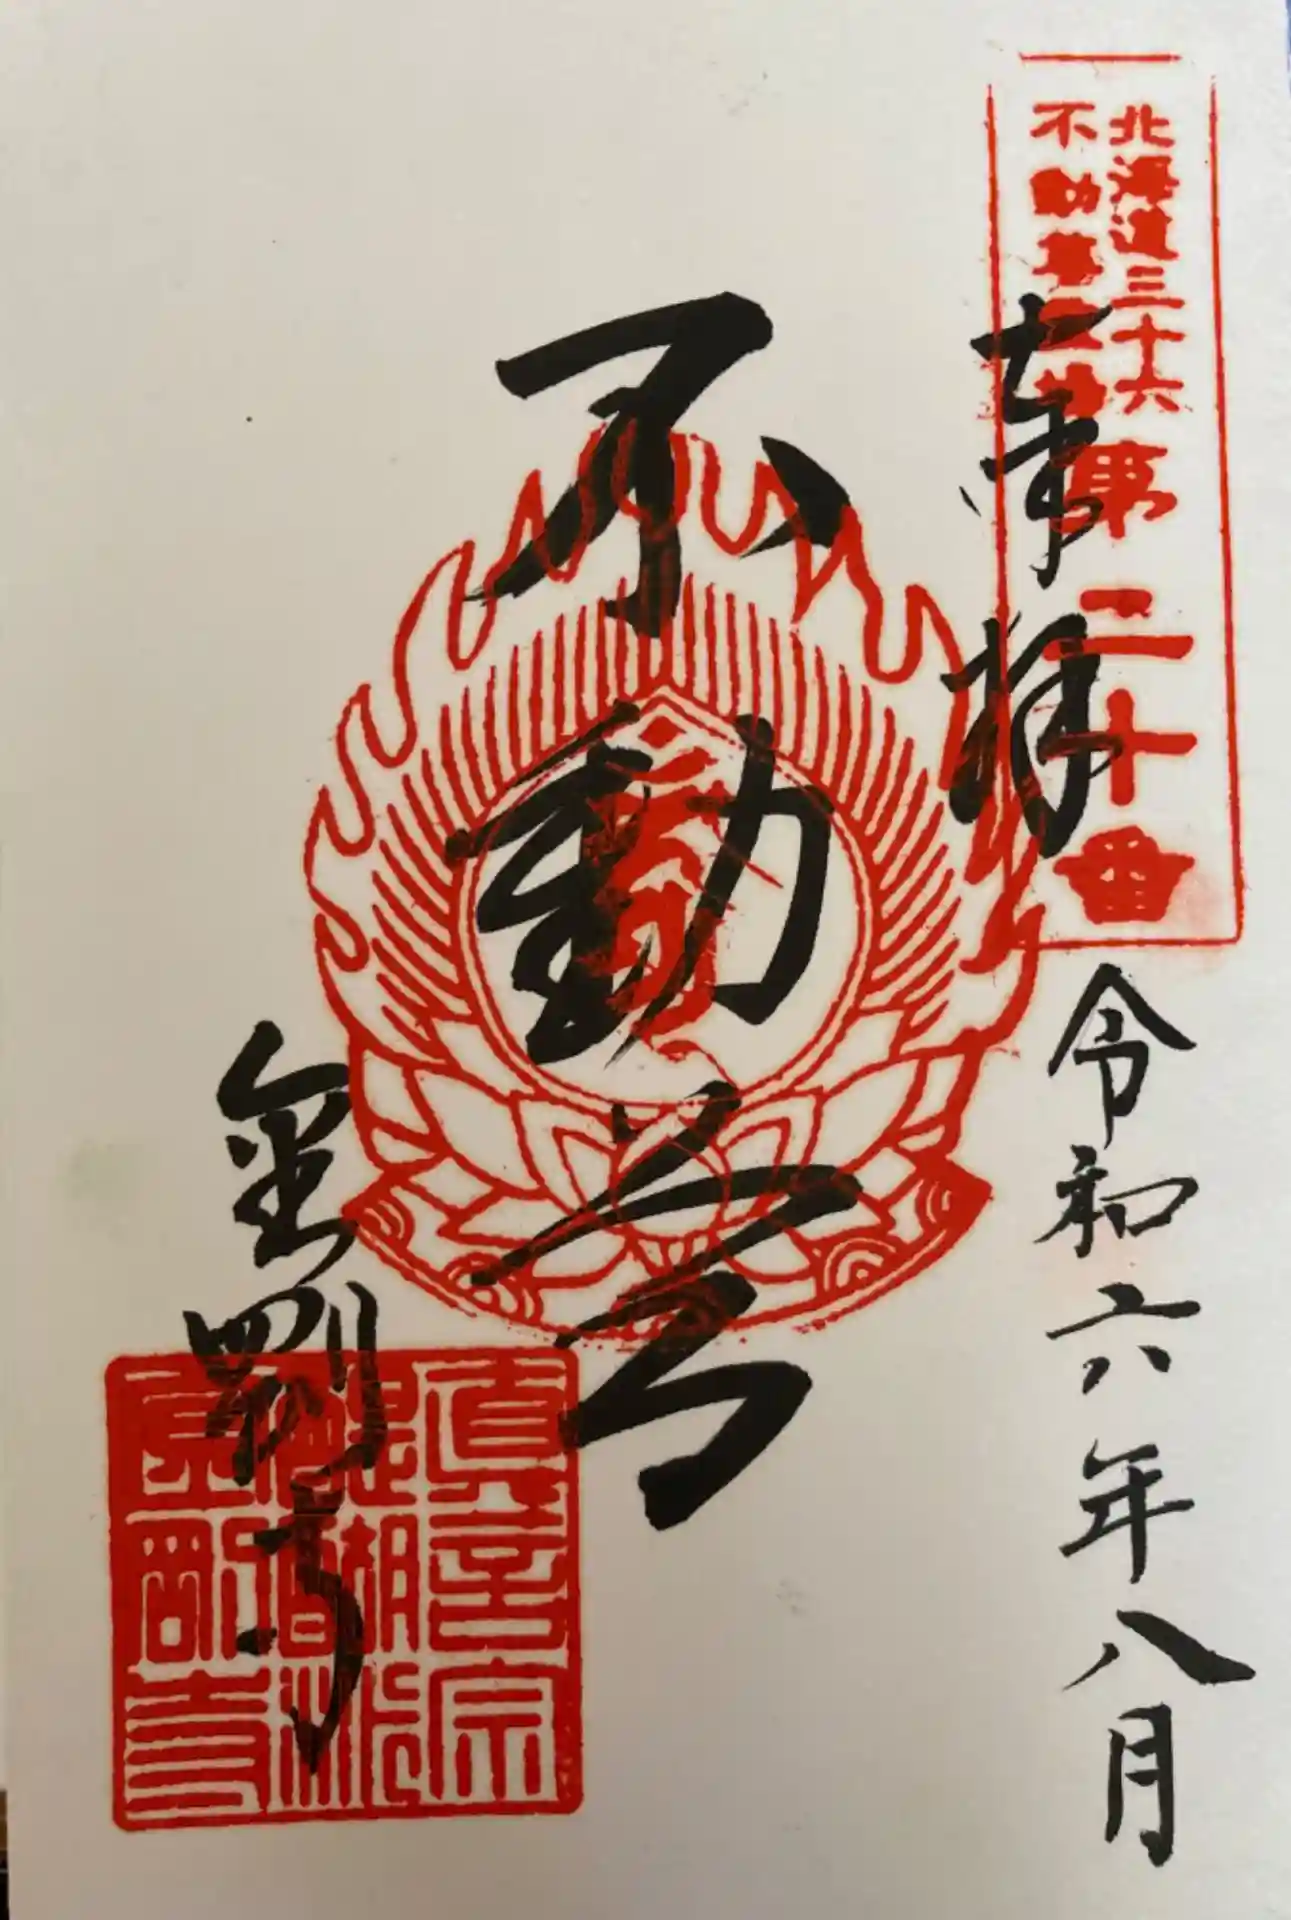 北海道三十六
不動尊霊場
第二十番
奉拝
令和六年八月
不動尊
金剛寺
真言宗
醍醐派
金剛寺